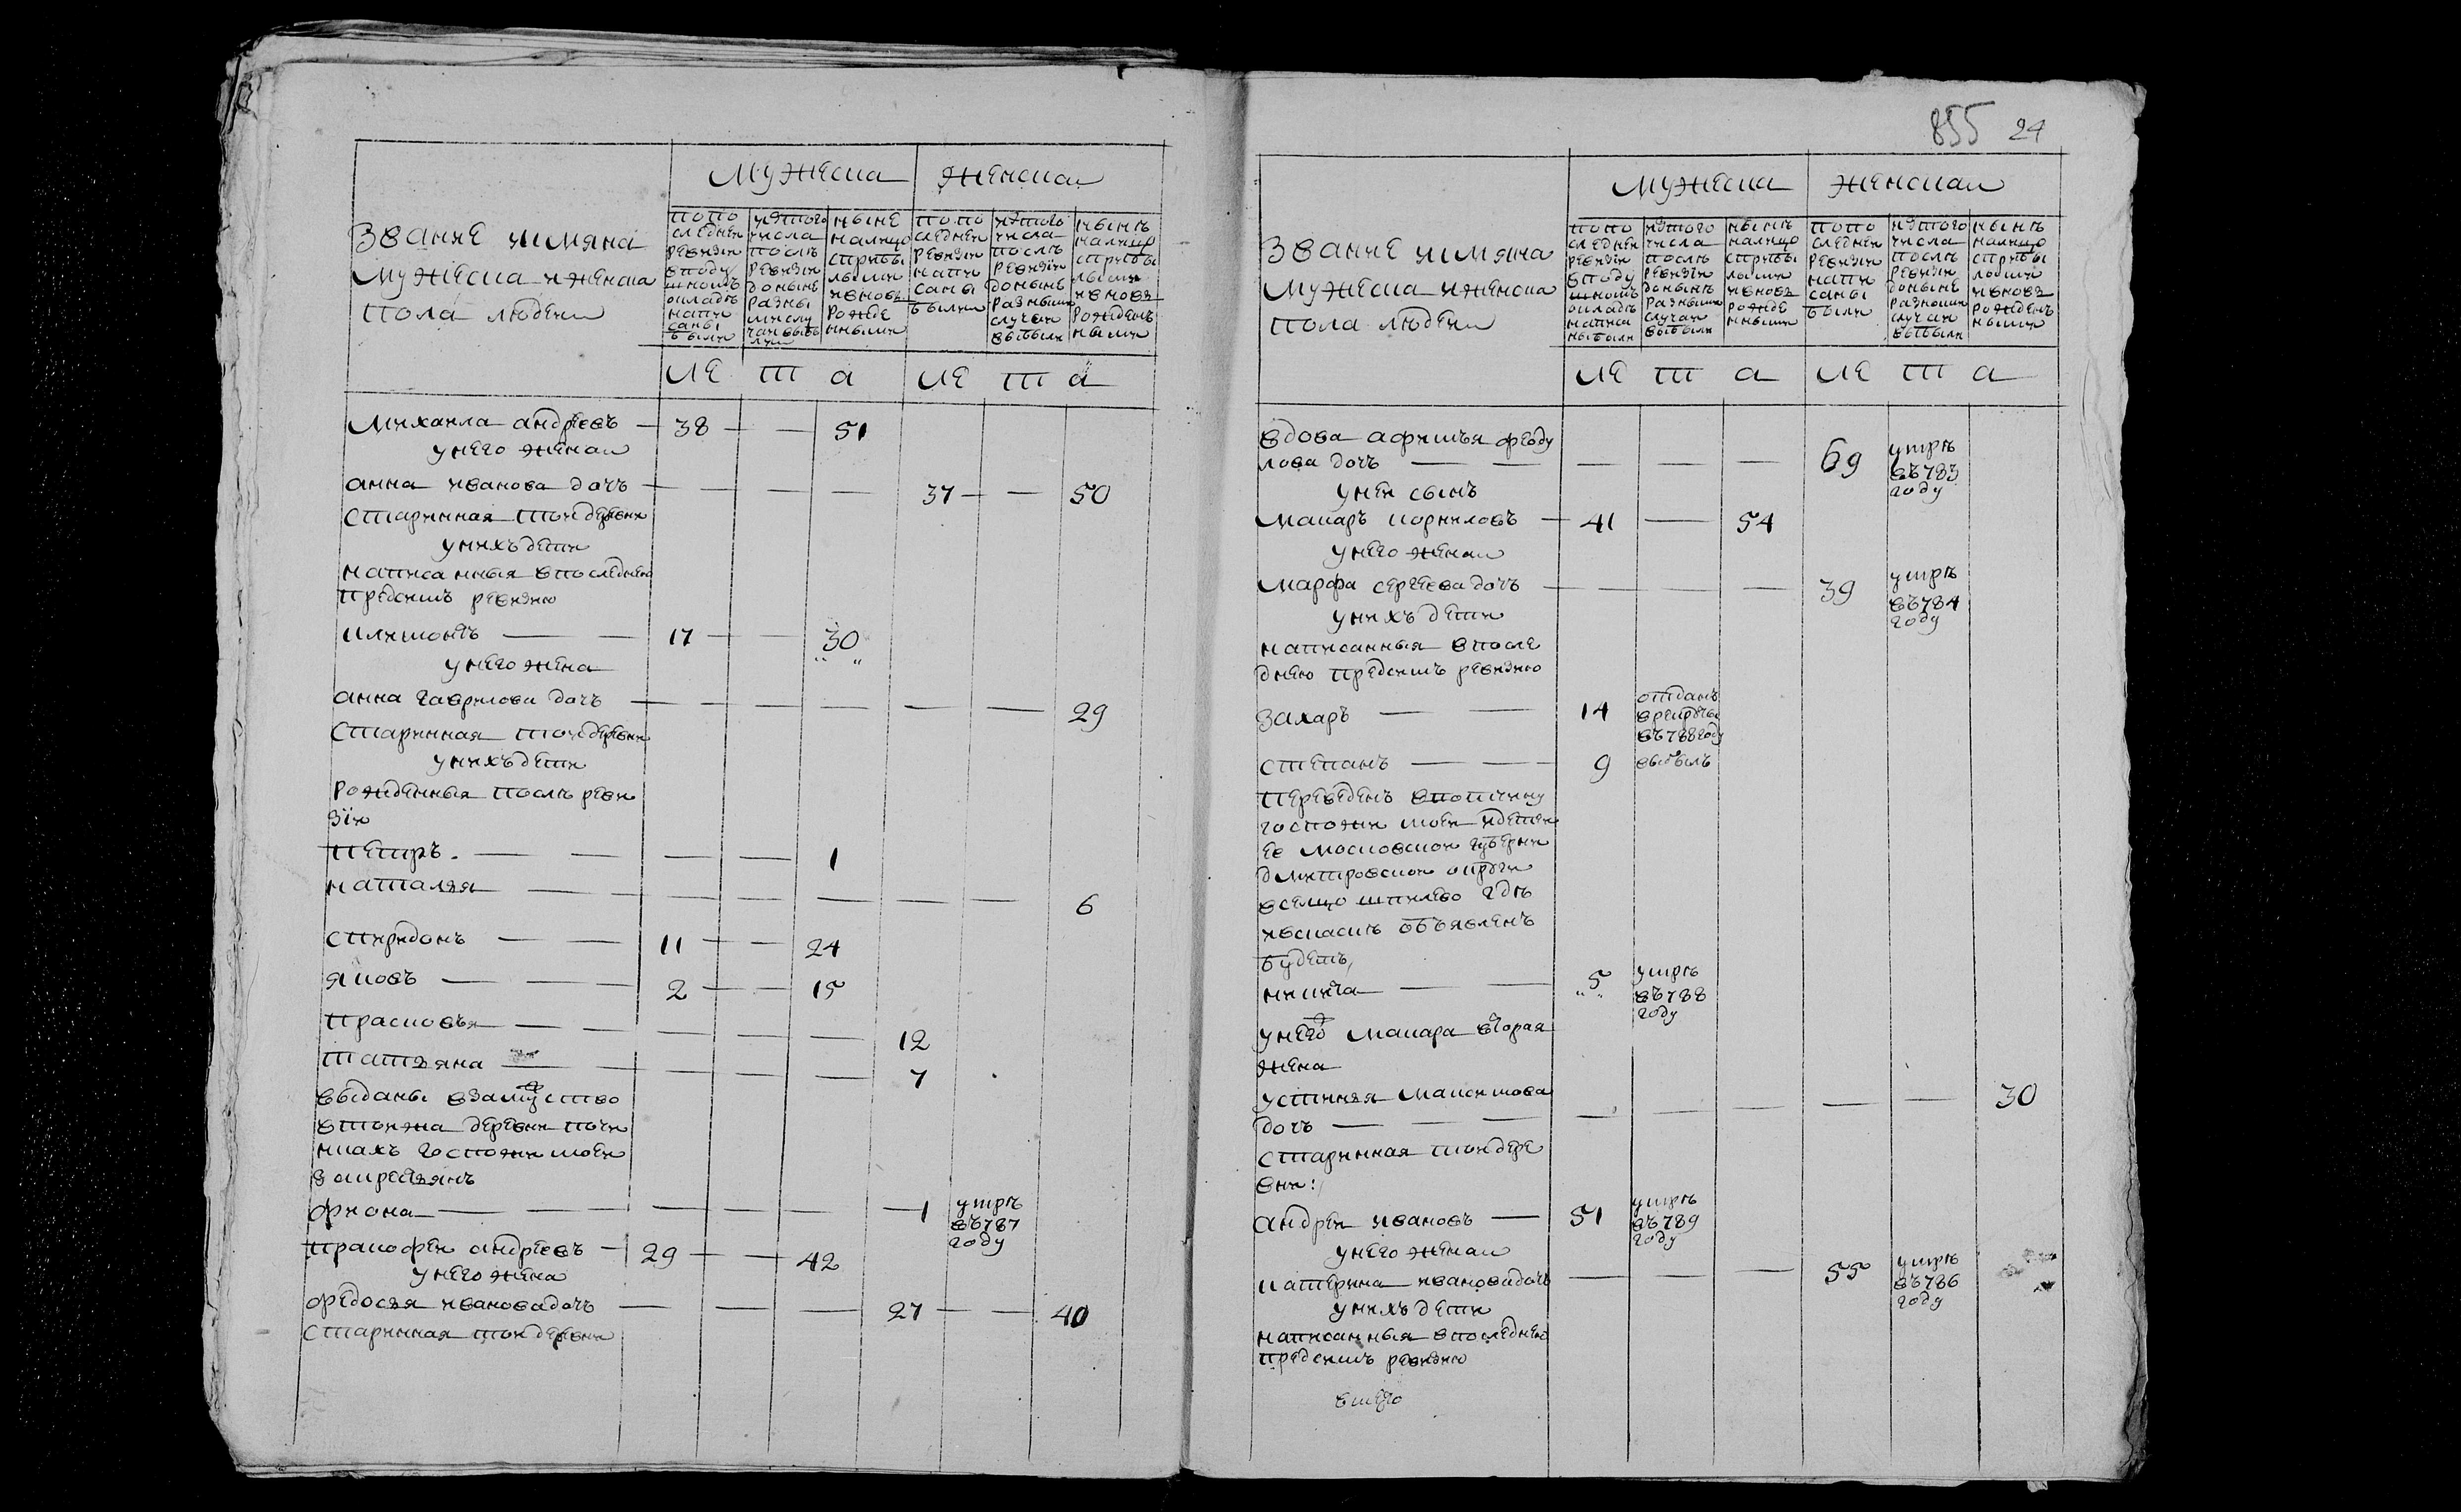 мужеска женскаи
звание иимяна
мужеска иженска
пола людеи
попо
следнеи
ревизiи
вподу
шномъ
окладѣ
напи
саны
были
изтого
числа
послѣ
ревизiи
доныне
разны
ми слу
чаи выбы
ли
ныне
налицо
сприбы
лыми
ивновь
рожде
нными
попо
следнеи
ревизiи
напи
саны
были
изтого
числа
послѣ
ревизiи
донынѣ
разными
случаи
выбыли
нынѣ
налицо
сприбы
лыми
ивновь
рожден
ными
ле т а ле т а
михаила андреевъ — 38 — — 51
унего женаи
анна иванова дочь — — — — 37 — — 50
старинная тои деревни
унихъ дети
написанныя впоследнею
предсимъ ревизию
климонтъ — — 17 — — 30
унего жена
анна гаврилова дочь — — — — — — 29
старинная тои деревни
унихъ дети
рожденныя послѣ реви
зiи
петръ — — — — 1
наталья — — — — — — 6
спиридонъ — — 11 — — 24
яковъ — — 2 — — 15
прасковья — — — — 12
татьяна — — — — 7
выданы взамужство
втои жа деревни
госпожи моеи
закрестьянъ
фиона — — — — — — 1 умре
въ 787
году
пракофеи андреевъ — 29 — — 42
унего жена
федосья иванова дочь — — — 27 — — 40
старинная тои деревни
855 24
мужеска женскаи
звание иимяна
мужеска иженска
пола людеи
попо
следнеи
ревизiи
вподу
шномъ
окладѣ
написа
ны были
изтого
числа
послѣ
ревизiи
донынѣ
разными
случаи
выбыли
нынѣ
налицо
сприбы
лыми
ивновь
рожде
нными
попо
следнеи
ревизiи
напи
саны
были
изтого
числа
послѣ
ревизiи
доныне
разными
случаи
выбыли
нынѣ
налицо
сприбы
лыми
ивновь
рожден
ными
ле т а ле т а
вдова афимья феду
лова дочь — — — — — 69 умрѣ
въ 783
году
унеи сынъ
макаръ корниловъ — 41 — 54
унего женаи
марфа сергеева дочь — — — 39 умрѣ
въ 784
году
унихъ дети
написанныя впосле
днею предсимъ ревизию
захаръ — — 14 отданъ
врекруты
въ 788 году
степанъ — — 9 выбылъ
переведенъ ввотчину
госпожи моеи идетеи
ее московскои губерни
дмитровскои округи
всельцо шпилево гдѣ
ивскаскѣ объявленъ
будетъ
никита — — 5 умрѣ
въ 788
году
унего макара вторая
жена
устинья
дочь — — — — — — — — 30
старинная тои дере
вни:
андреи ивановъ — 51 умрѣ
въ 789
году
унего женаи
катерина иванова дочь — — — 55 умрѣ
въ 786
году
унихъ дети
написанныя впоследнею
предсимъ ревизию